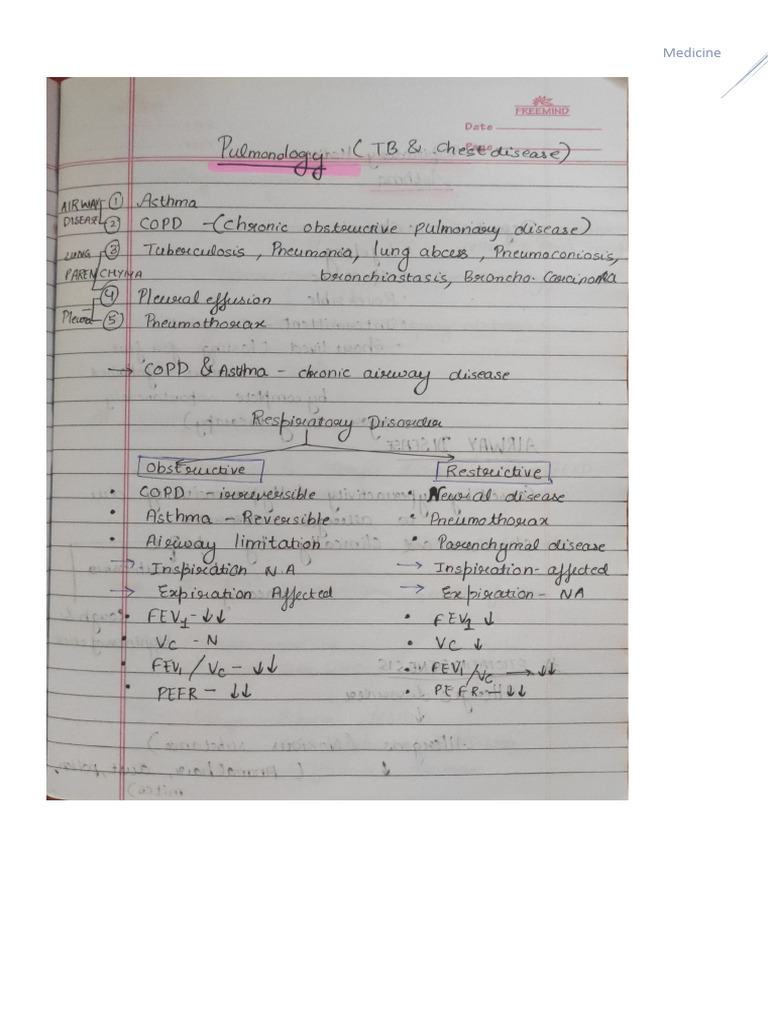 Medicine
FREEMIND
Date
Page
Pulmonology (TB & chest disease)
AIRWAY DISEASE
① Asthma
② COPD - (chronic obstructive pulmonary disease)
LUNG PARENCHYMA
③ Tuberculosis, Pneumonia, lung abcess, Pneumoconiosis,
bronchiastasis, Broncho. Carcinoma
④ Pleural effusion
Pleura
⑤ Pneumothorax
→ COPD & Asthma - chronic airway disease
Respiratory Disorder
Obstructive
• COPD - irreversible
• Asthma - Reversible
• Airway limitation
→ Inspiration NA
→ Expiration Affected
• FEV1 - ↓↓
• VC - N
• FEV1 / VC - ↓↓
• PEFR - ↓↓
Restrictive
• Neural disease
• Pneumothorax
• Parenchymal disease
→ Inspiration - affected
→ Expiration - NA
• FEV1 ↓
• VC ↓
• FEV1/VC → ↓↓
• PEFR - ↓↓